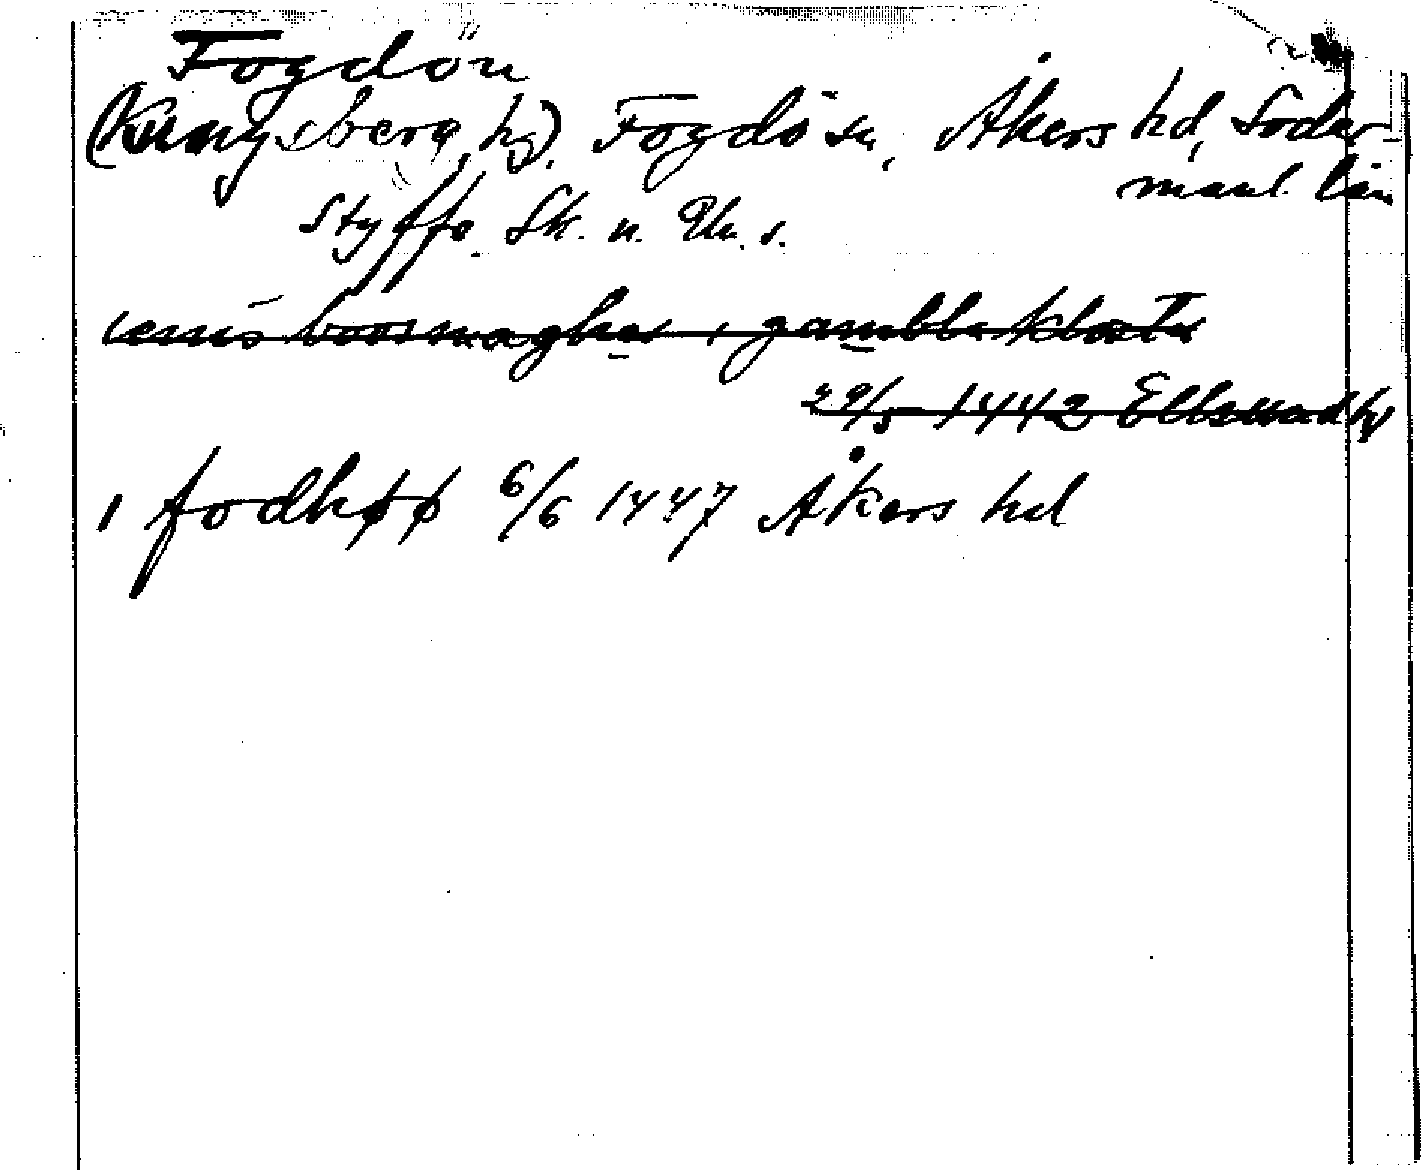 Fogdön
(Kungsberg, hg). Fogdö sn, Åkers hd, Söder-
manl. län
Styffe Sk. u. Un. s.
ienis boosmaghær i gamblæ klostær
29/5 1442
i fodhøø 6/6 1447 Åkers hd